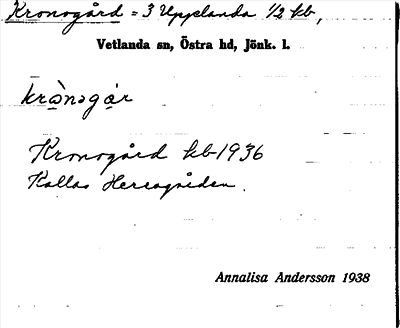 Kronogård = 3 Upplanda 1/2 kb,
Vetlanda sn, Östra hd, Jönk. l.
krònogår
Kronogård kb 1936
Kallas Herrgården.
Annalisa Andersson 1938